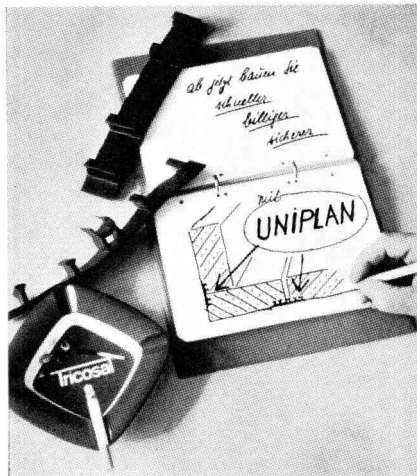 ab jetzt bauen Sie
schneller
billiger
sicherer
mit
UNIPLAN
Tricosal